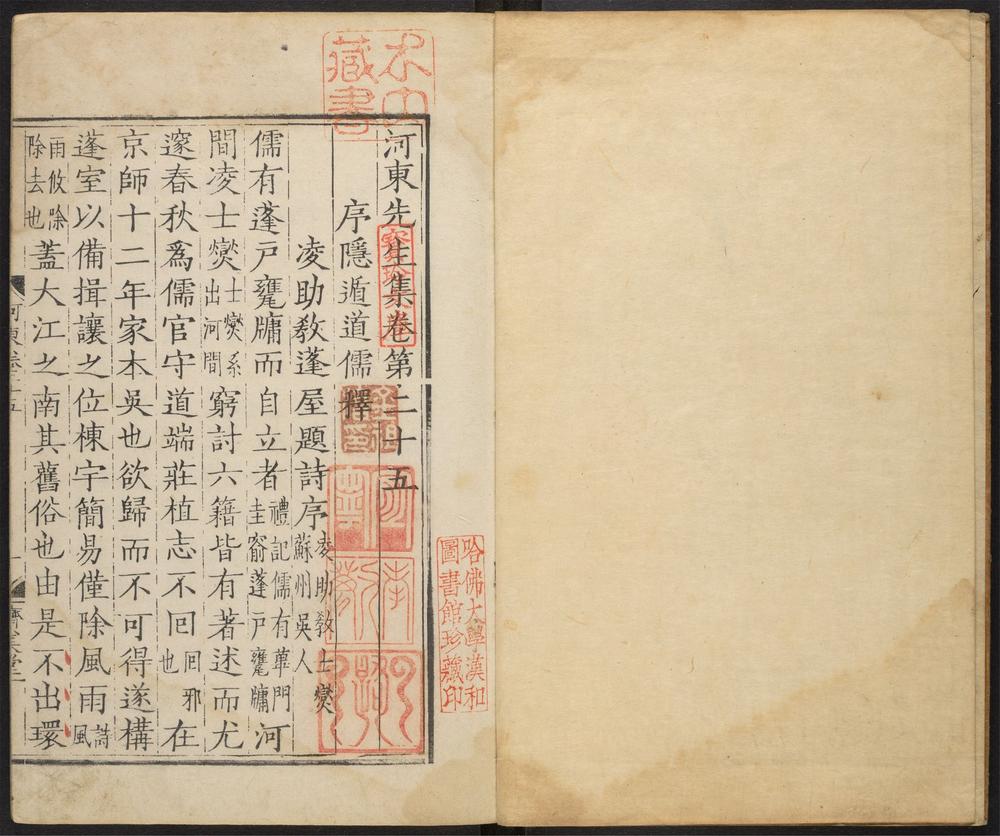 河東先生集卷第二十五
序隱遁道儒釋
凌助教蓬屋題詩序凌助教士燮蘇州吳人
儒有蓬戶甕牖而自立者禮記儒有蓽門圭窬蓬戶甕牖河
間凌士燮士燮系出河間窮討六籍皆有著述而尤
邃春秋爲儒官守道端莊植志不回回邪也在
京師十二年家本吳也欲歸而不可得遂構
蓬室以備揖讓之位棟宇簡易僅除風雨詩風
雨攸除除去也蓋大江之南其舊俗也由是不出環
河東
藏書
哈佛大學漢和
圖書館珍藏印